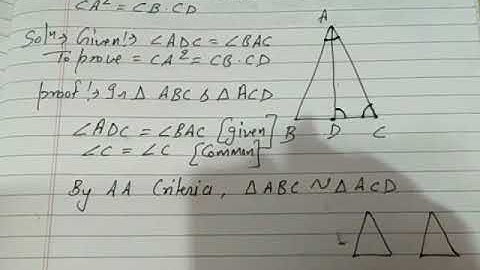 CA² = CB·CD
Solⁿ:→ Given:→ ∠ADC = ∠BAC
To prove = CA² = CB·CD
proof:→ In Δ ABC & Δ ACD
∠ADC = ∠BAC [given]
∠C = ∠C [Common]
By AA Criteria, Δ ABC ~ Δ ACD
A
B D C